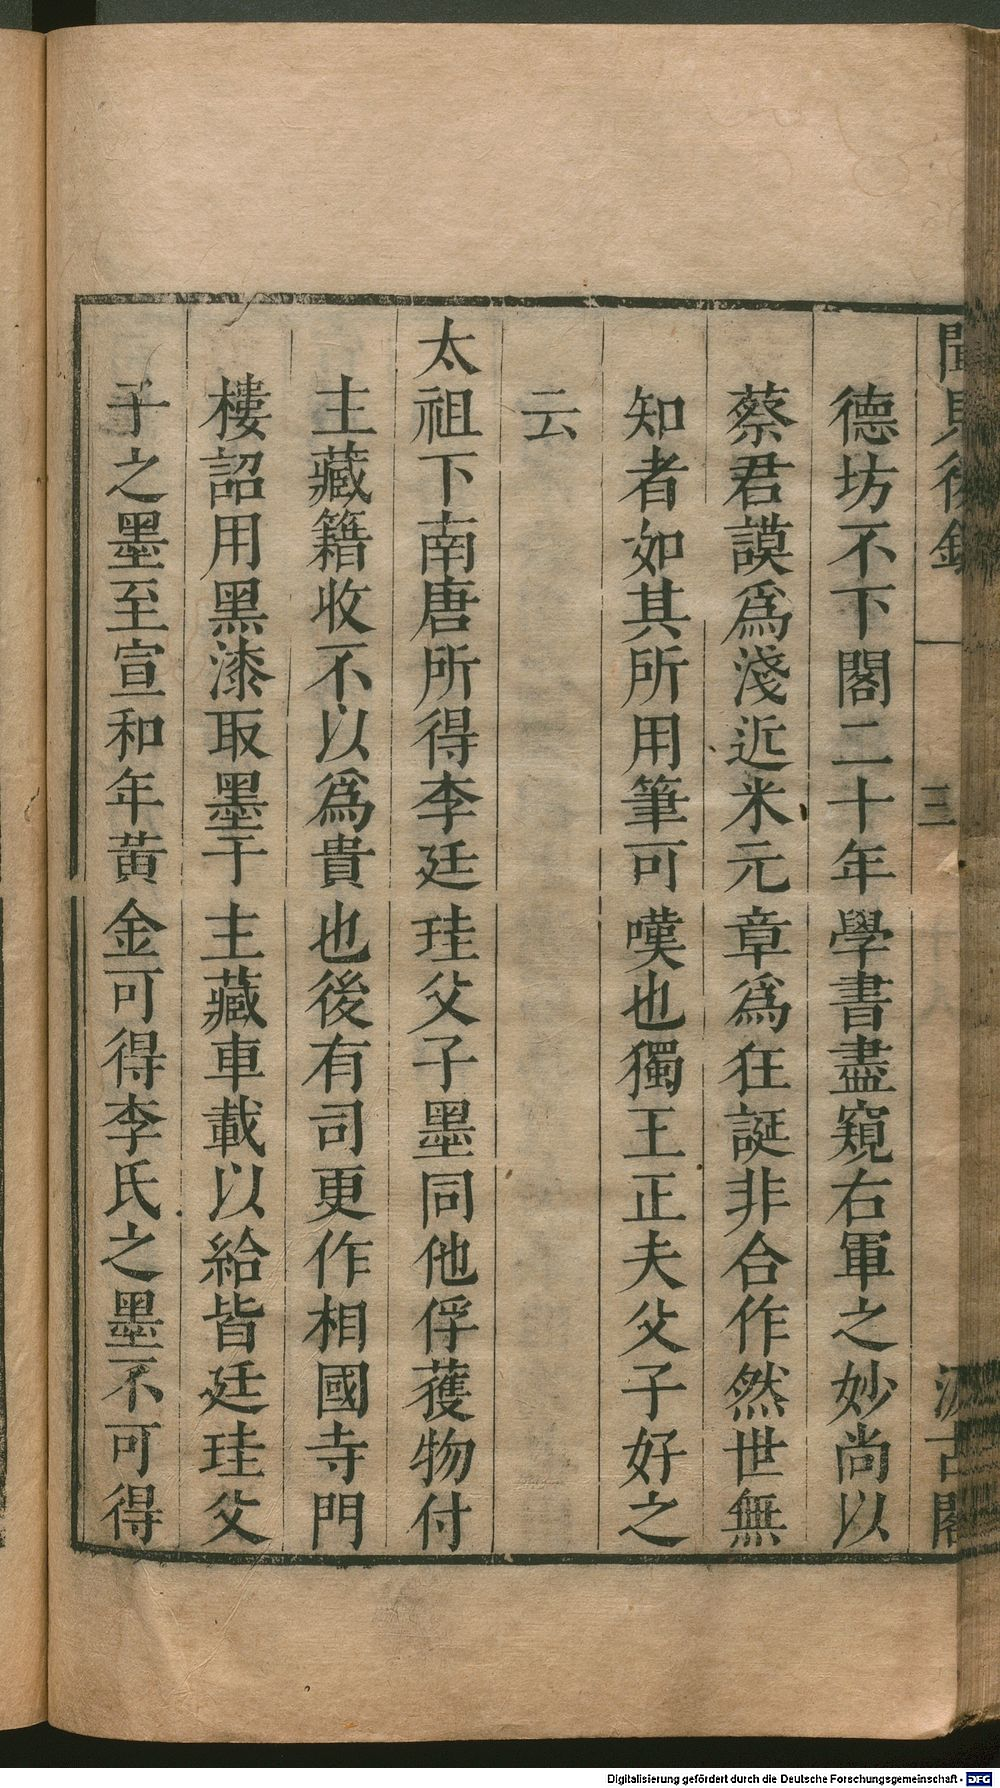 聞見後錄
三
汲古閣
德坊不下閣二十年學書盡窺右軍之妙尚以
蔡君謨爲淺近米元章爲狂誕非合作然世無
知者如其所用筆可嘆也獨王正夫父子好之
云
太祖下南唐所得李廷珪父子墨同他俘獲物付
主藏籍收不以爲貴也後有司更作相國寺門
樓詔用黑漆取墨于主藏車載以給皆廷珪父
子之墨至宣和年黃金可得李氏之墨不可得
Digitalisierung gefördert durch die Deutsche Forschungsgemeinschaft - DFG